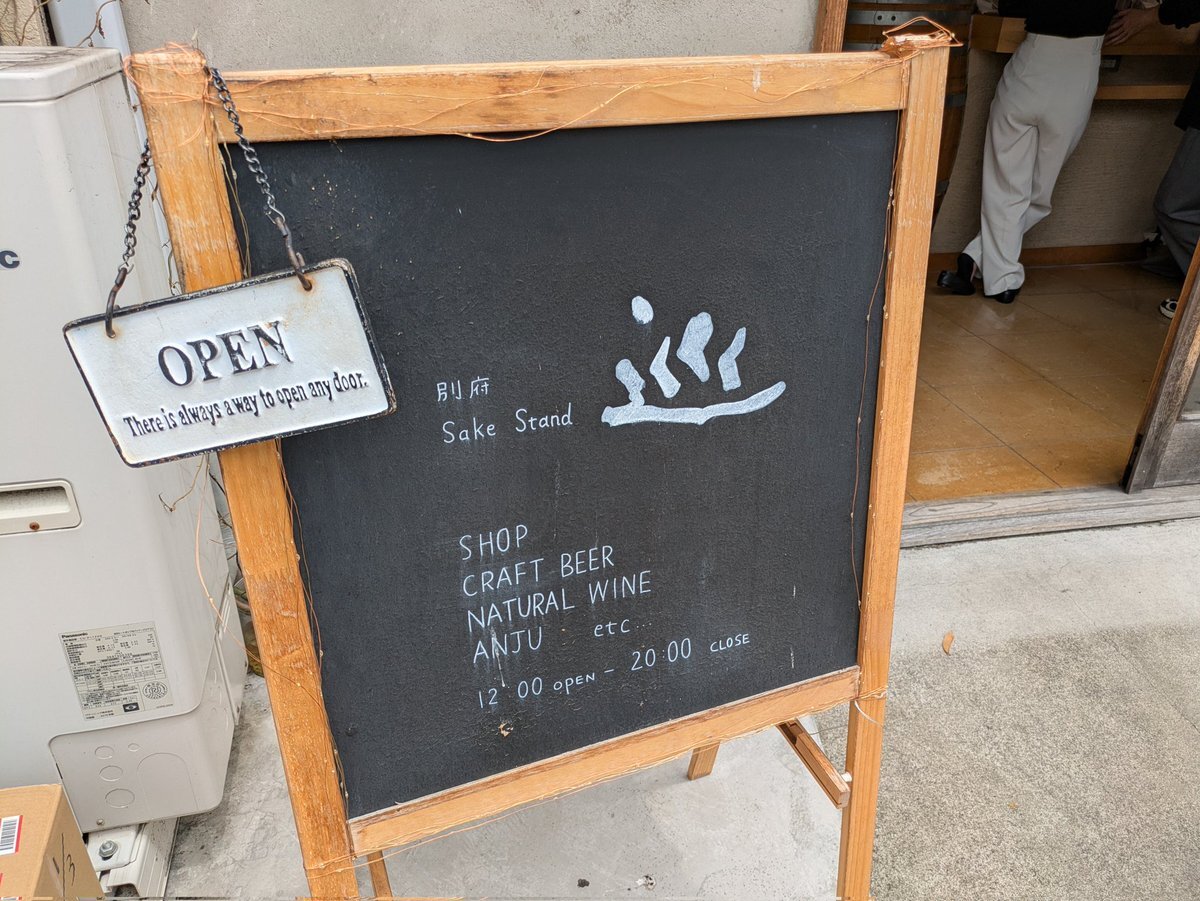 OPEN
There is always a way to open any door.
別府
Sake Stand
SHOP
CRAFT BEER
NATURAL WINE
ANJU etc...
12:00 OPEN - 20:00 CLOSE
Panasonic
1/3